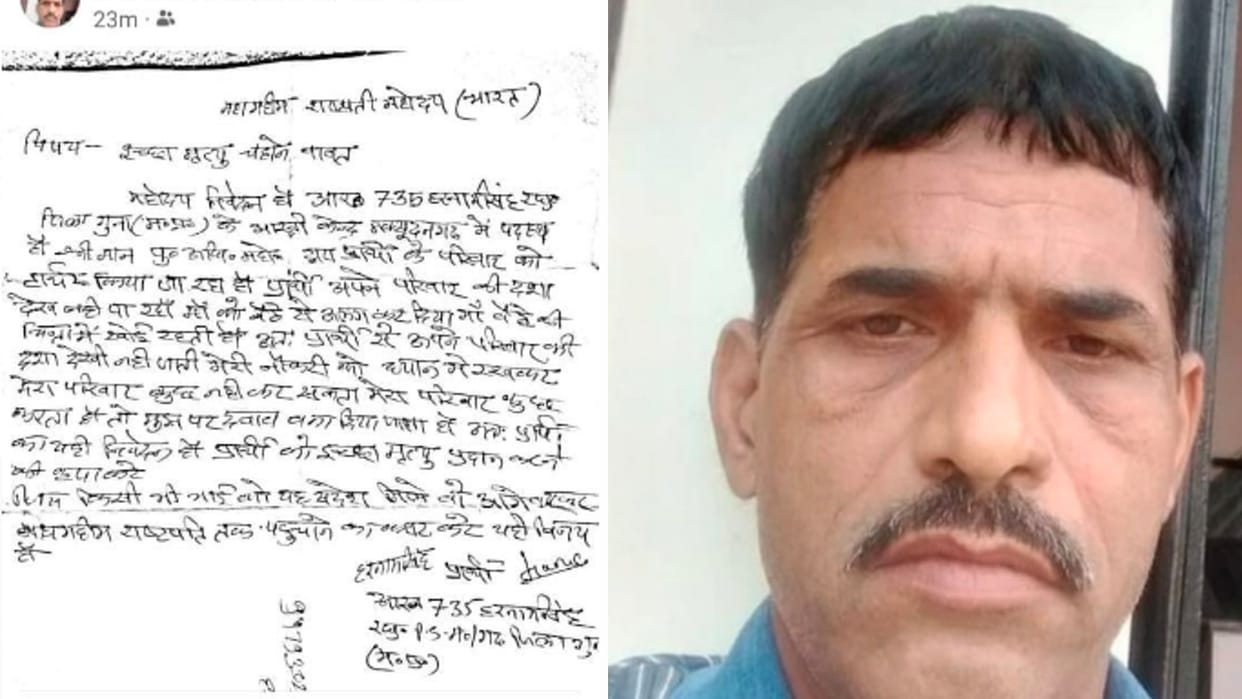 23m ·
महामहीम राष्ट्रपती महोदय (भारत)
विषय- इच्छा मृत्यु चहाने वावत
महोदय निवेदन है आर० 735 हरनामसिंह रघु०
जिला गुना (म०प्र०) के आरक्षी केन्द्र मकसूदनगढ में पदस्थ
है श्री मान द्वारा प्रार्थी के परिवार को
किया जा रहा है प्रार्थी अपने परिवार की दशा
देख नही पा रहा माँ को बेटे से अलग कर दिया माँ बेटे की
में खोई रहती है अतः प्रार्थी से अपने परिवार की
दशा देखी नही जाती मेरी नौकरी को ध्यान मे रखकर
मेरा परिवार कुछ नही कर सकता मेरा परिवार कुछ
करता है तो मुझ पर दवाव वना दिया जाता है अतः प्रार्थी
का यही निवेदन है प्रार्थी को इच्छा मृत्यु प्रदान करने
की कृपा करे
जिस किसी भी भाई को यह संदेश मिले वो आगे
महामहीम राष्ट्रपति तक पहुचाने का कष्ट करे यही विनय
है
हरनामसिंह प्रार्थी
आर० 735 हरनामसिंह
रघु० P.S. म०गढ जिला गुना
(म०प्र०)